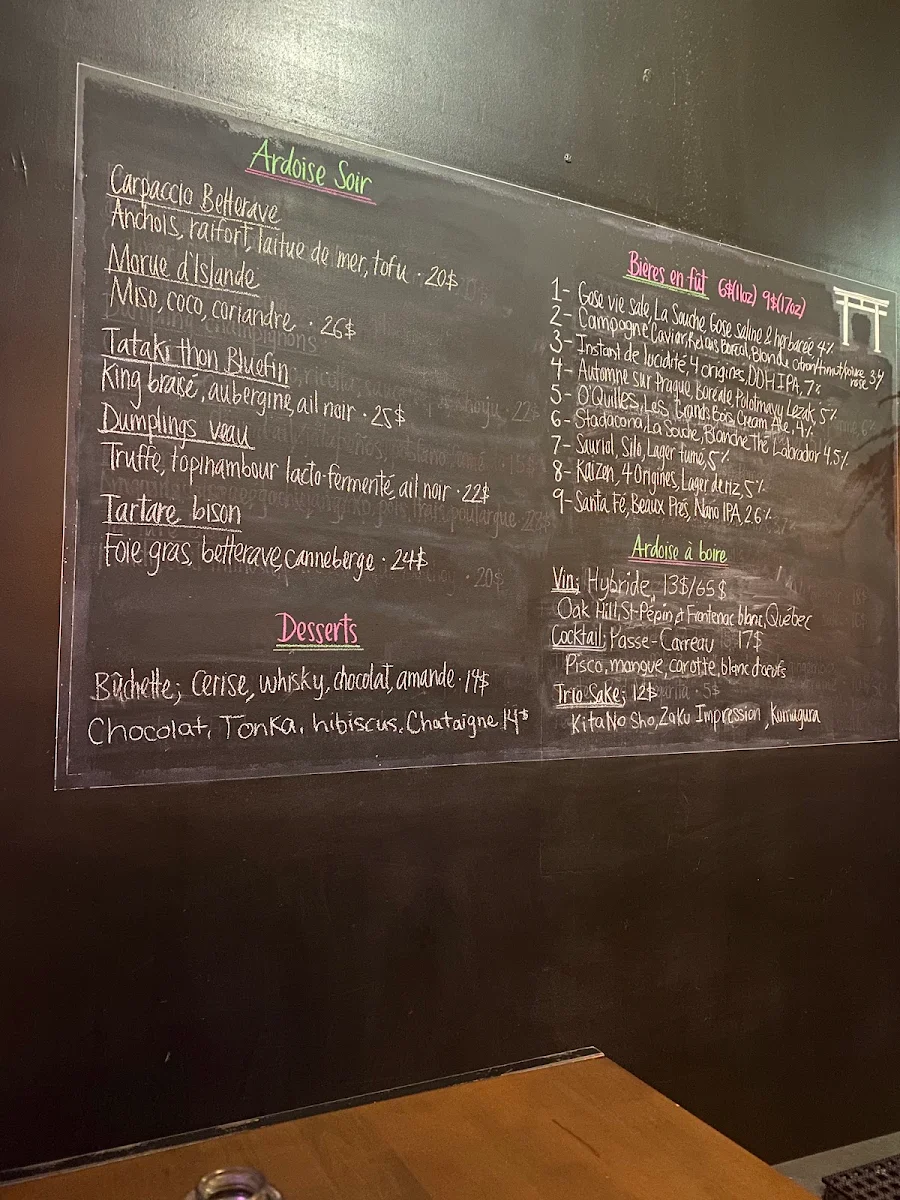 Ardoise Soir
Carpaccio Betterave
Anchois, raifort, laitue de mer, tofu · 20$
Morue d'Islande
Miso, coco, coriandre · 26$
Tataki thon Bluefin
King braisé, aubergine, ail noir · 25$
Dumplings veau
Truffe, topinambour lacto-fermenté, ail noir · 22$
Tartare bison
Foie gras, betterave, canneberge · 24$
Desserts
Bûchette; Cerise, whisky, chocolat, amande · 14$
Chocolat, Tonka, hibiscus, Chataigne 14$
Bières en fût 6$(11oz) 9$(17oz)
1- Gose vie sale, La Souche Gose saline & herbacée 4%
2- Campagne Caviar, Relais Boréal, Blonde citron/ 3,4
3- Instant de lucidité, 4 origines, DDH IPA, 7%
4- Automne sur Prague, Boréale, Polotmavy Lezak, 5%
5- O'Quilles, Les Grands Bois, Cream Ale, 4%
6- Stadacona, La Souche, Blanche thé Labrador 4.5%
7- Saurial, Silo, Lager fumé, 5%
8- Kaizen, 4 Origines, Lager de riz, 5%
9- Santa Fé, Beaux Prés, Nano IPA, 2.6%
Ardoise à boire
Vin; Hybride, 13$/65$
Oak Hill, St-Pépin & Frontenac blanc, Québec
Cocktail; Passe-Carreau 17$
Pisco, mangue, carotte, blanc d'œufs
Trio Sake; 12$
Kita No Sho, Zaku Impression, Kumagura